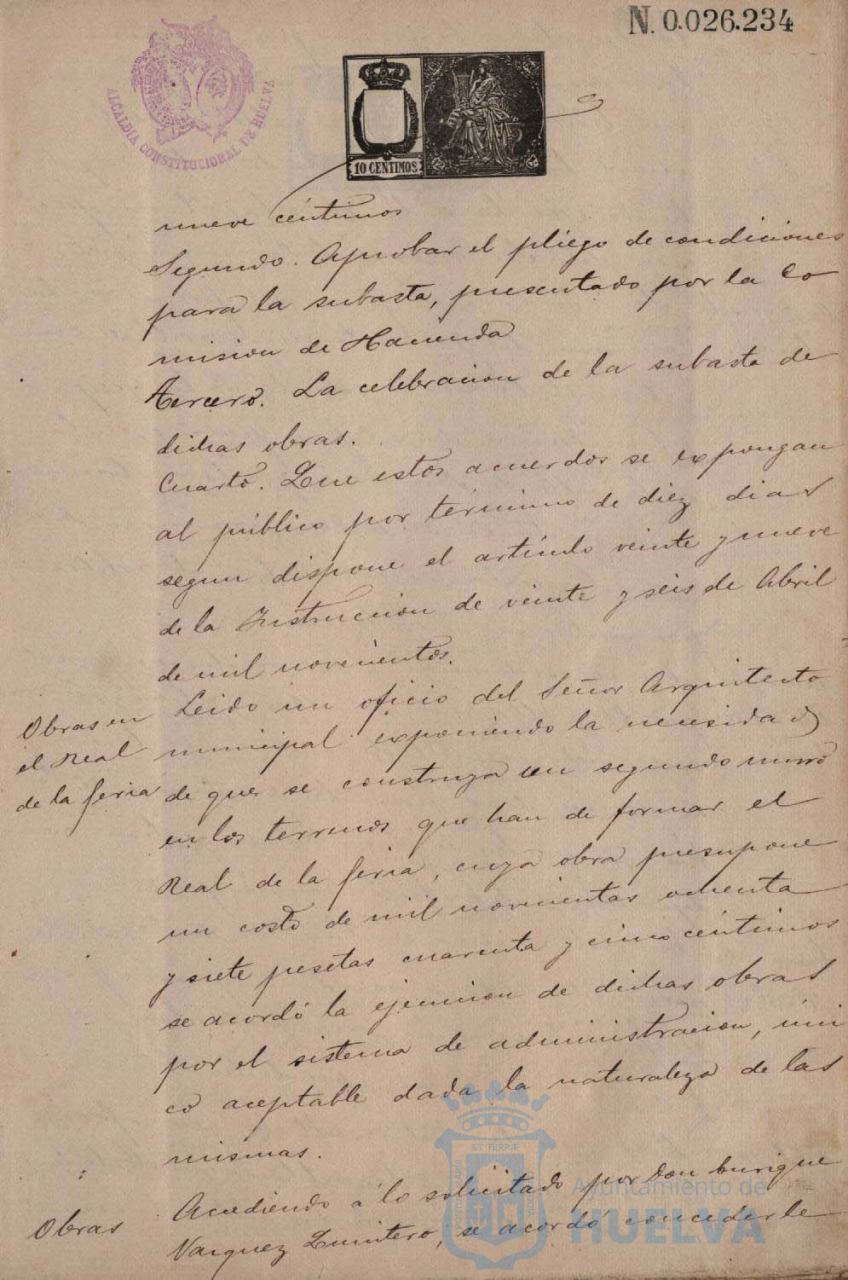 N. 0.026.234
ALCALDIA CONSTITUCIONAL DE HUELVA
10 CENTIMOS
nueve céntimos
Segundo. Aprobar el pliego de condiciones
para la subasta, presentado por la Co
mision de Hacienda
Tercero. La celebracion de la subasta de
dichas obras.
Cuarto. Que estos acuerdos se expongan
al público por término de diez dias
segun dispone el artículo veinte y nueve
de la Instruccion de veinte y seis de Abril
de mil novecientos.
Obras en
el Real
de la feria
Leido un oficio del Señor Arquitecto
municipal exponiendo la necesidad
de que se construya un segundo muro
en los terrenos que han de formar el
Real de la feria, cuya obra presupone
un costo de mil novecientas ochenta
y siete pesetas cuarenta y cinco céntimos
se acordó la ejecucion de dichas obras
por el sistema de administracion, úni
co aceptable dada la naturaleza de las
mismas.
Obras
Accediendo á lo solicitado por don Enrique
Vazquez Quintero, se acordó concederle
Ayuntamiento de
HUELVA